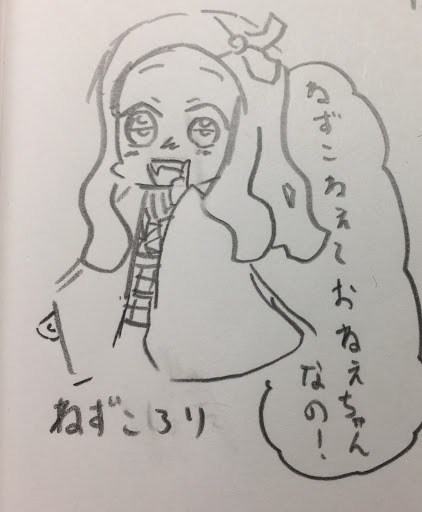 ねずこねえて
おねえちゃん
なの！
ねずころり